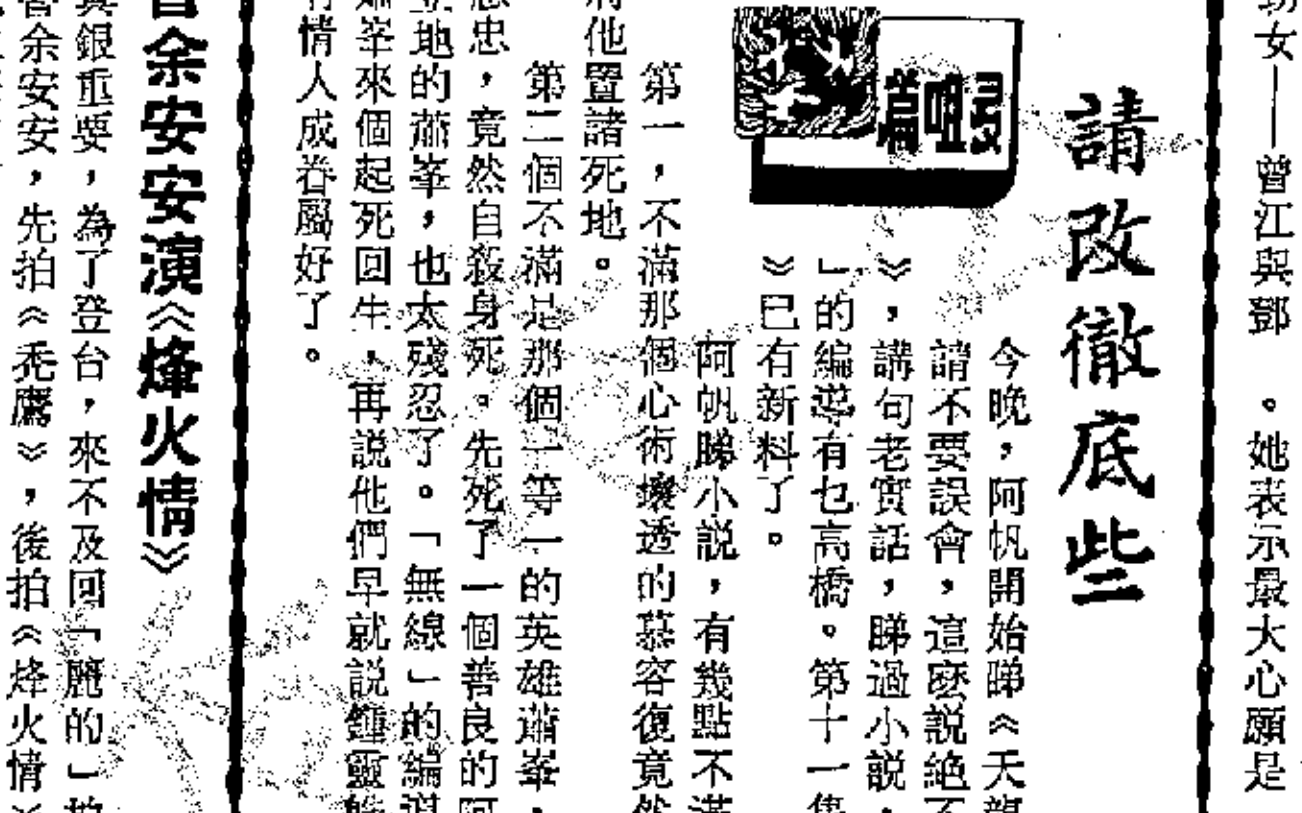 女——曾江與鄧　。她表示最大心願是
請改徹底些
今晚，阿帆開始睇《天龍
請不要誤會，這麼説絶不
》，講句老實話，睇過小説，
」的編導有乜高橋。第十一集
》已有新料了。
阿帆睇小説，有幾點不滿
第一，不滿那個心術壞透的慕容復竟然
他置諸死地。
第二個不滿是那個一等一的英雄蕭峯，
忠，竟然自殺身死。先死了一個善良的阿
地的蕭峯，也太殘忍了。「無線」的編
峯來個起死回生，再説他們早就説鍾靈
情人成眷屬好了。
余安安演《烽火情》
銀重要，為了登台，來不及回「麗的」拍
余安安，先拍《禿鷹》，後拍《烽火情》